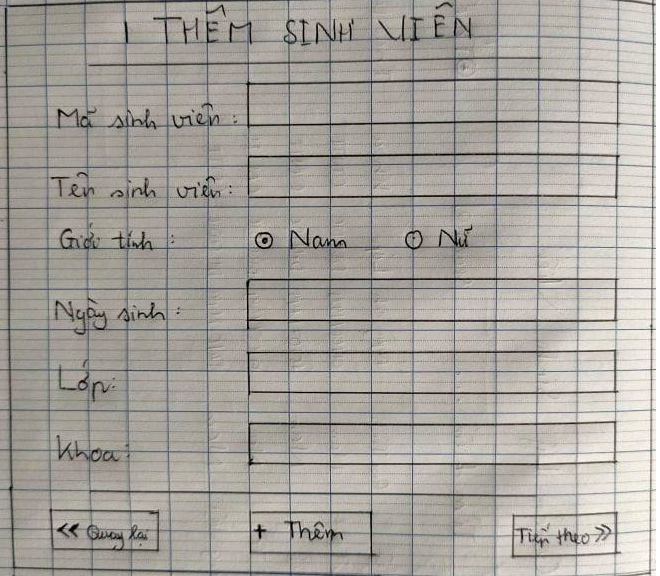 THÊM SINH VIÊN
Mã sinh viên:
Tên sinh viên:
Giới tính: Nam Nữ
Ngày sinh:
Lớp:
Khoa:
<< Quay lại + Thêm Tiếp theo >>